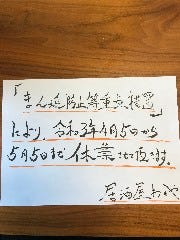 「まん延防止等重点措置」
により、令和3年4月5日から
5月5日まで休業させて頂きます。
居酒屋